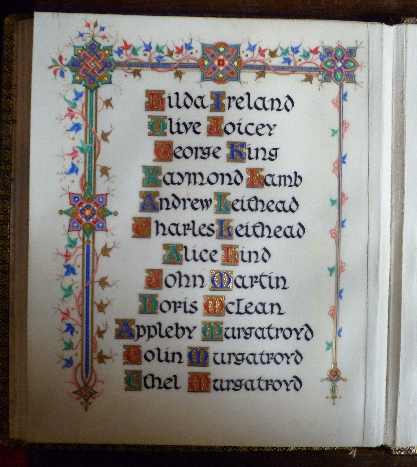 Hilda Ireland
Olive Joicey
George King
Raymond Lamb
Andrew Leithead
Charles Leithead
Alice Lind
John Martin
Doris McLean
Appleby Murgatroyd
Colin Murgatroyd
Ethel Murgatroyd